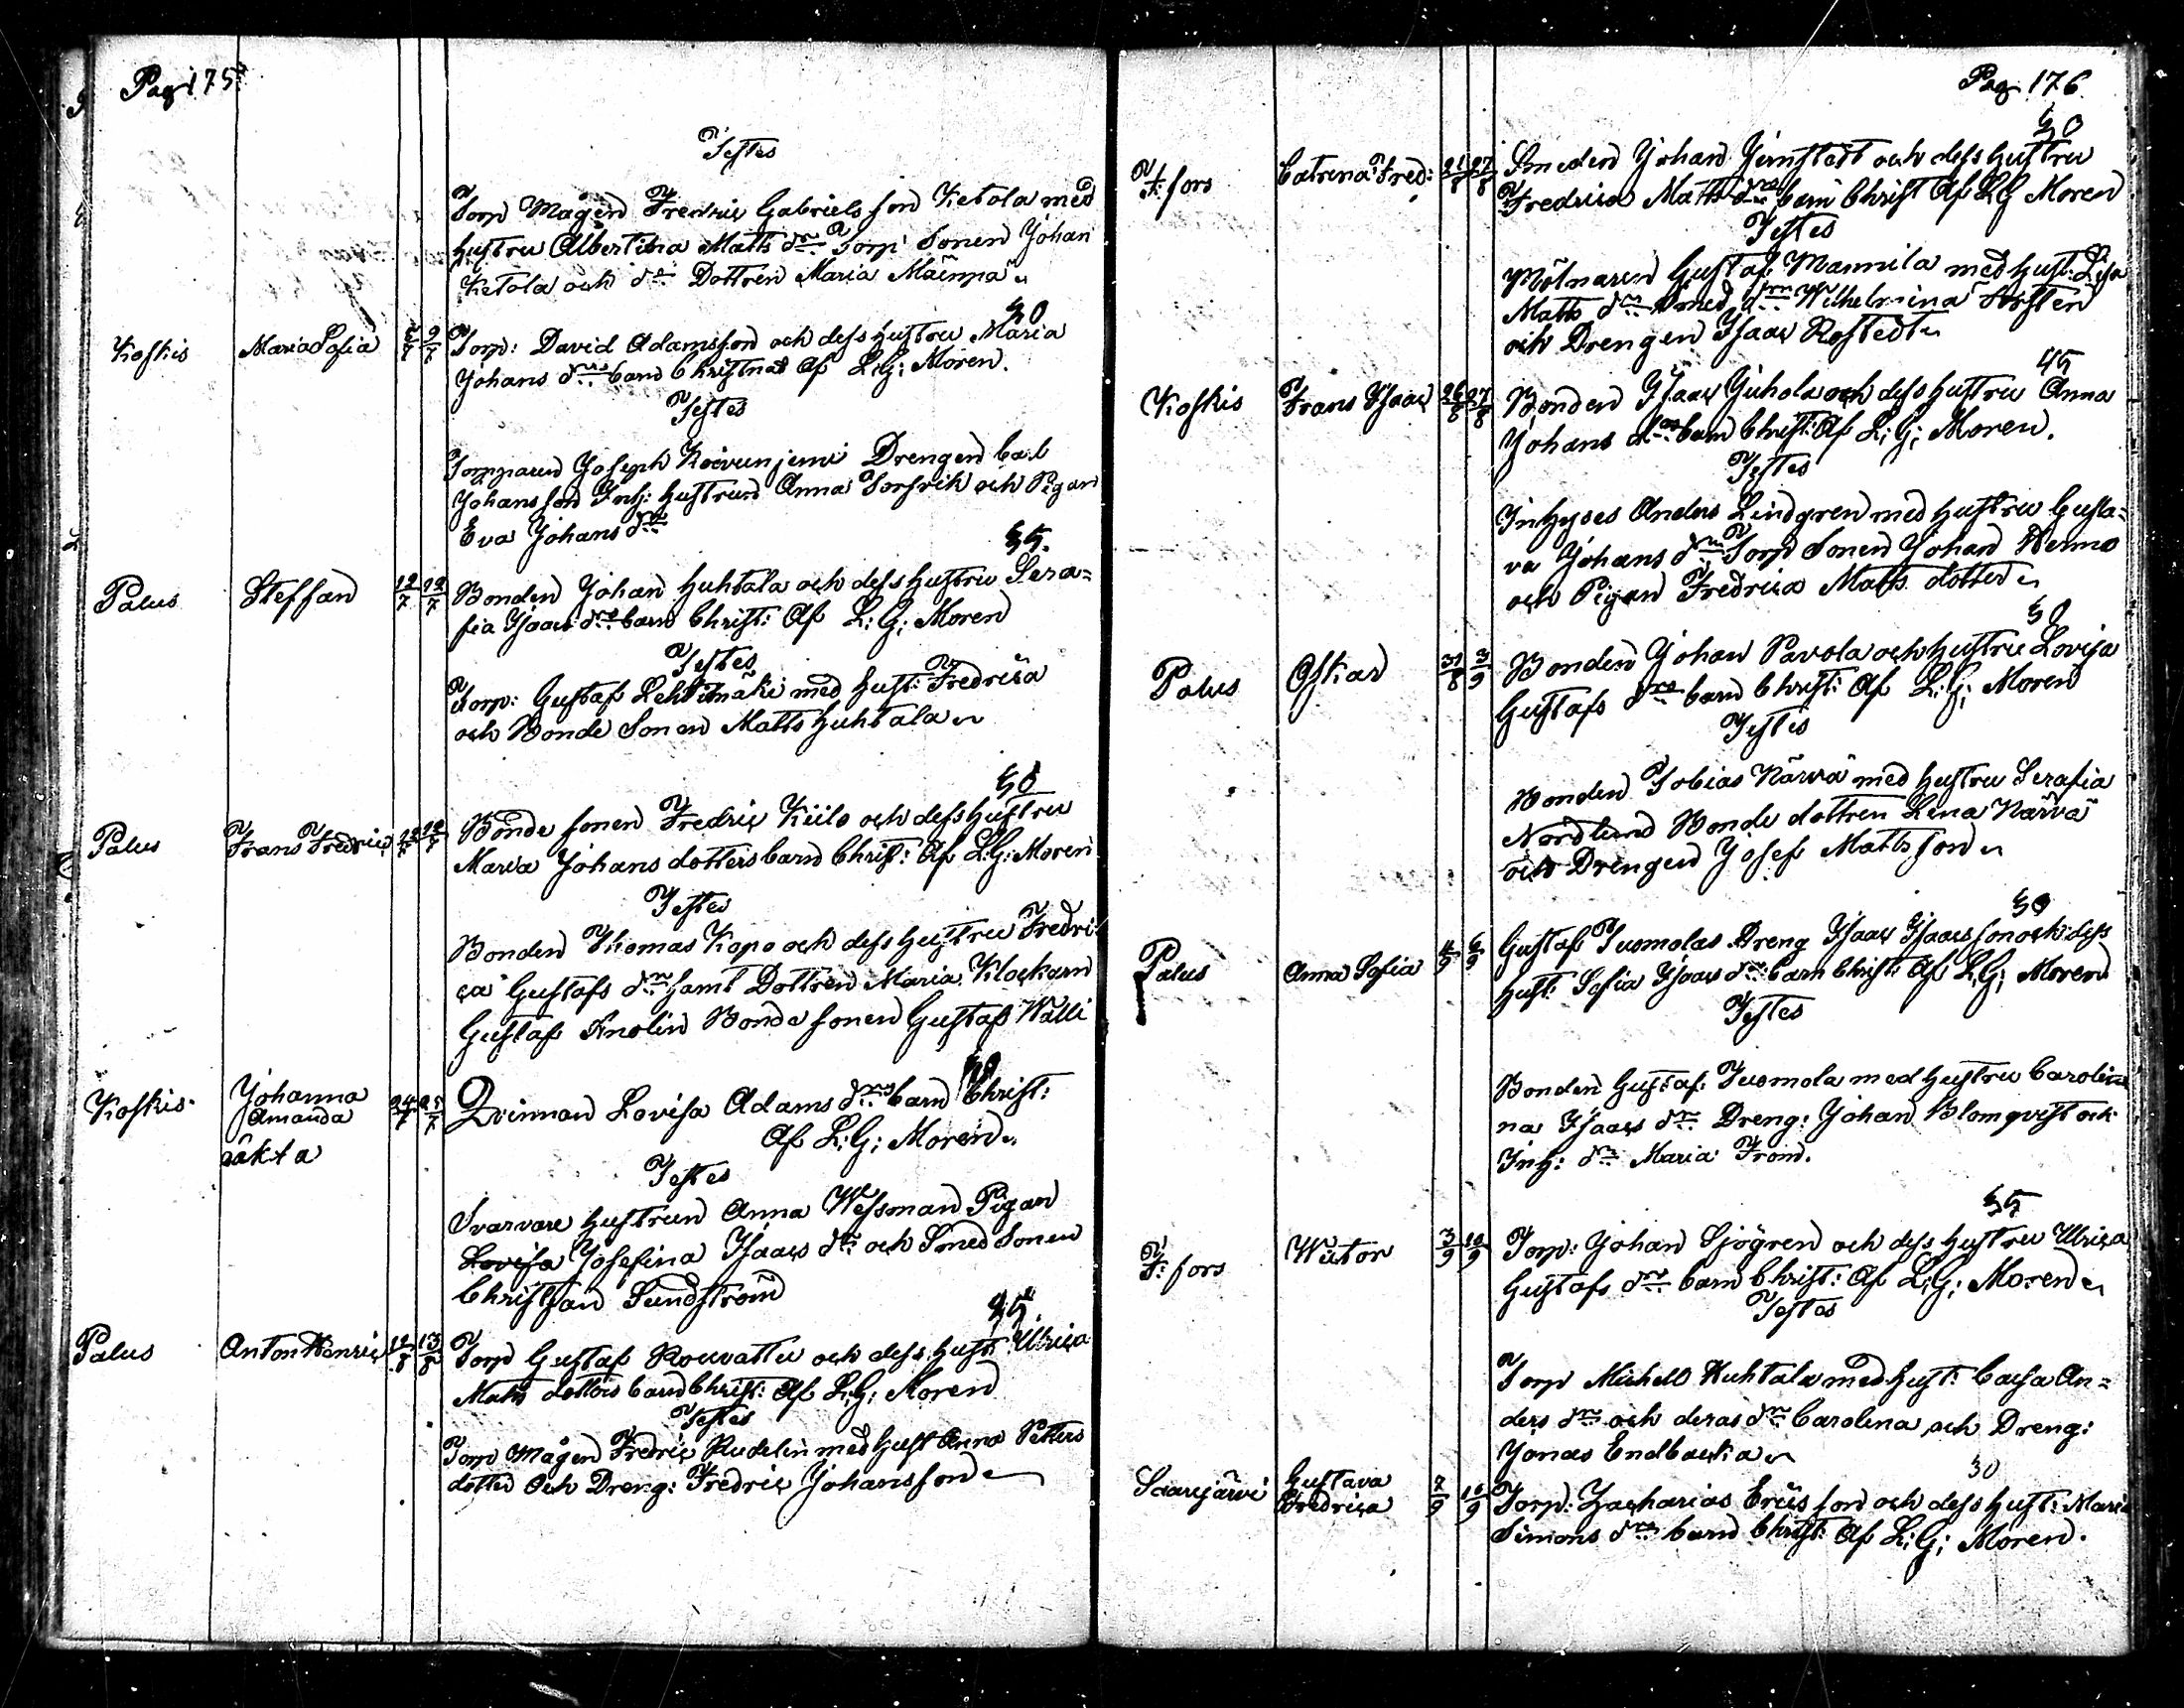 Pag 175
Testes
Torp Mågen Fredric Gabriels son Ketola med
hustru Albertina Matts dr Torp Sonen Johan
Ketola och dr Dottren Maria Mäenpää
30
Koskis Maria Sofia 5/7 9/7 Torp: David Adamsson och dess hustru Maria
Johans drs barn Christnat Af L: G: Moren.
Testes
Torpparen Joseph Koivunjemi Drengen Carl
Johansson Inh: hustrun Anna Torfrik och Pigan
Eva Johans dr
35.
Palus Steffan 12/7 12/7 Bonden Johan Huhtala och dess hustru Sera=
fia Isaacs drs barn Christ: Af L: G: Moren
Testes
Torp: Gustaf Lehtimäki med hust: Fredrica
och Bonde Sonen Matts Huhtala
30
Palus Frans Fredric 12/7 12/7 Bonde sonen Fredric Kiilo och dess hustru
Maria Johans dotters barn Christ: Af L: G: Moren
Testes
Bonden Thomas Kopo och dess hustru Fredri
ca Gustafs dr samt Dottren Maria Klockarn
Gustaf Anolin Bonde sonen Gustaf Wälli
Koskis Johanna 24/7 25/7 Qvinnan Lovisa Adams drs barn Christ:
Amanda Af L: G: Moren
oäkta
Testes
Svarvare hustrun Anna Wessman Pigan
Lovisa Josefina Isaacs dr och Smed Sonen
Christian Sundström
25.
Palus Anton Henric 12/8 13/8 Torp Gustaf Rouvattu och dess hust Ulrica
Matts dotters barn Christ: Af L: G: Moren
Testes
Torp Mågen Fredric Rudelin med hust Anna Petters
dotter Och Dreng: Fredric Johansson
Pag 176
30
F: fors Catrina Fred: 21/8 27/8 Smeden Johan Jernstedt och dess hustru
Fredrica Matts drs barn Christ Af L G Moren
Testes
Mölnaren Gustaf Mannila med hust: Lisa
Matts dr Smed drn Wilhelmina
och Drengen Isaac Rostedt
45
Koskis Frans Isaac 26/8 27/8 Bonden Isaac Juhola och dess hustru Anna
Johans drs barn Christ: Af L: G: Moren.
Testes
Inhyses Anders Lindgren med hustru Gusta=
va Johans dr Torp Sonen Johan Hemmo
och Pigan Fredrica Matts dotter
30
Palus Oskar 31/8 3/9 Bonden Johan Pavola och hustru Lovisa
Gustafs drs barn Christ: Af L: G: Moren
Testes
Bonden Tobias Närvä med hustru Serafia
Nordlund Bonde dottren Lena Närvä
och Drengen Josef Mattsson
30
Palus Anna Sofia 4/9 6/9 Gustaf Tuomolas Dreng Isaac Isaacsson och dess
hust: Sofia Isaacs drs barn Christ: Af L: G: Moren
Testes
Bonden Gustaf Tuomola med hustru Caroli
na Isaacs dr Dreng: Johan Blomqvist och
Inh: dr Maria From.
35
F: fors Wictor 3/9 10/9 Torp: Johan Sjögren och dess hustru Ulrica
Gustafs drs barn Christ: Af L: G: Moren
Testes
Torp Michell Huhtala med hust: Caisa An=
ders dr och deras dr Carolina och Dreng:
Jonas Endbacka
30
Saarijärvi Gustava 7/9 10/9 Torp: Zacharias Ericsson och dess hust: Maria
Fredrica Simons drs barn Christ: Af L: G: Moren.